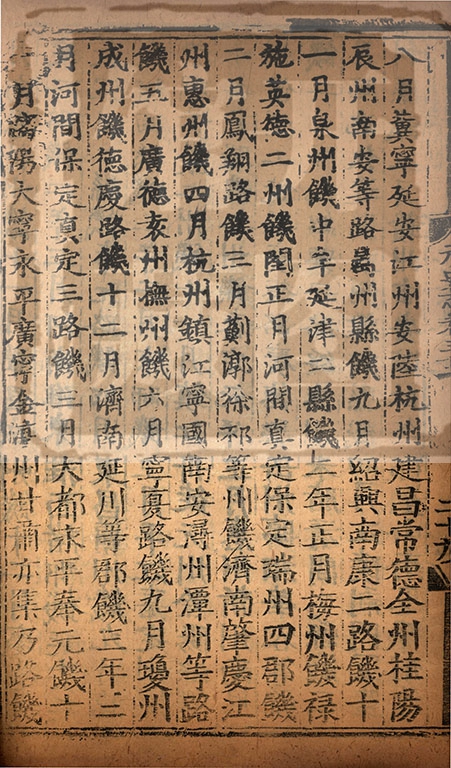 八月冀寧延安江州安陸杭州建昌常德全州桂陽
辰州南安等路屬州縣饑九月紹興南康二路饑十
一月泉州饑中牟延津二縣饑二年正月梅州饑祿
施英德二州饑閏正月河間真定保定瑞州四郡饑
二月鳳翔路饑三月薊漷徐邳等州饑濟南肇慶江
州惠州饑四月杭州鎮江寧國南安潯州潭州等路
饑五月廣德袁州撫州饑六月寧夏路饑九月瓊州
成州饑德慶路饑十二月濟南延川等郡饑三年三
月河間保定真定三路饑三月大都永平奉元饑十
一月瀋陽大寧永平廣寧金復州甘肅亦集乃路饑
二十九